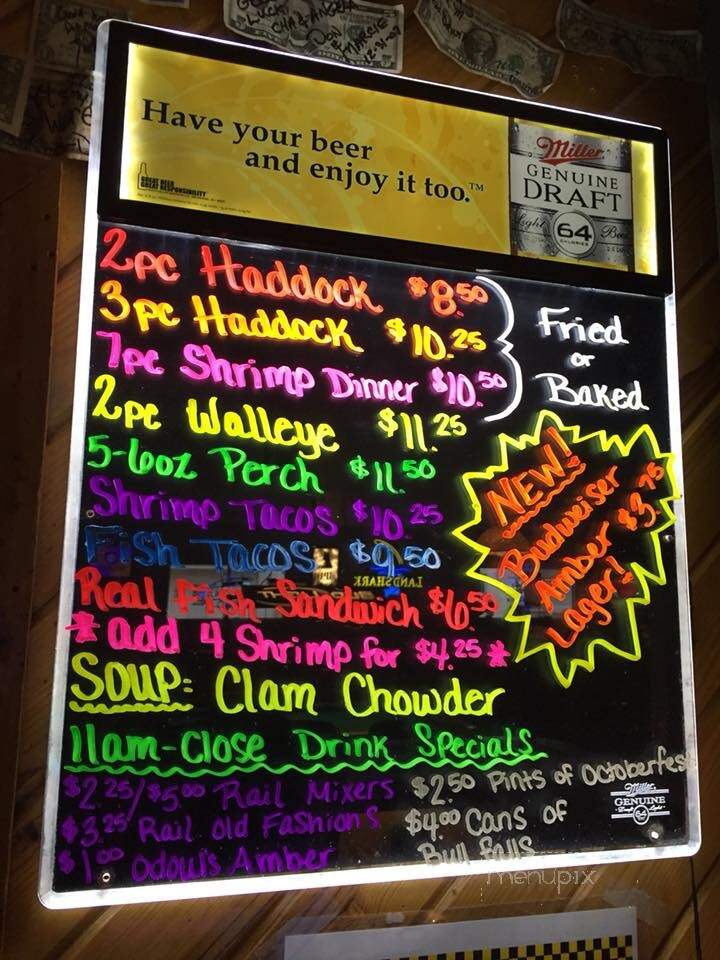 Have your beer
and enjoy it too.™
GREAT BEER
GREAT RESPONSIBILITY
Miller
GENUINE
DRAFT
Light 64 Beer
CALORIES
2pc Haddock $8.50
3pc Haddock $10.25
7pc Shrimp Dinner $10.50
Fried
or
Baked
2pc Walleye $11.25
5-6oz Perch $11.50
Shrimp Tacos $10.25
Fish Tacos $9.50
Real Fish Sandwich $6.50
* add 4 Shrimp for $4.25 *
NEW!
Budweiser
Amber $3.75
Lager!
LANDSHARK
Soup: Clam Chowder
11am-Close Drink Specials
$2.25/$5.00 Rail Mixers
$3.25 Rail Old Fashions
$1.00 Odouls Amber
$2.50 Pints of Octoberfest
$4.00 Cans of
Bull Falls
Miller
GENUINE
Draft Light
64
menupix